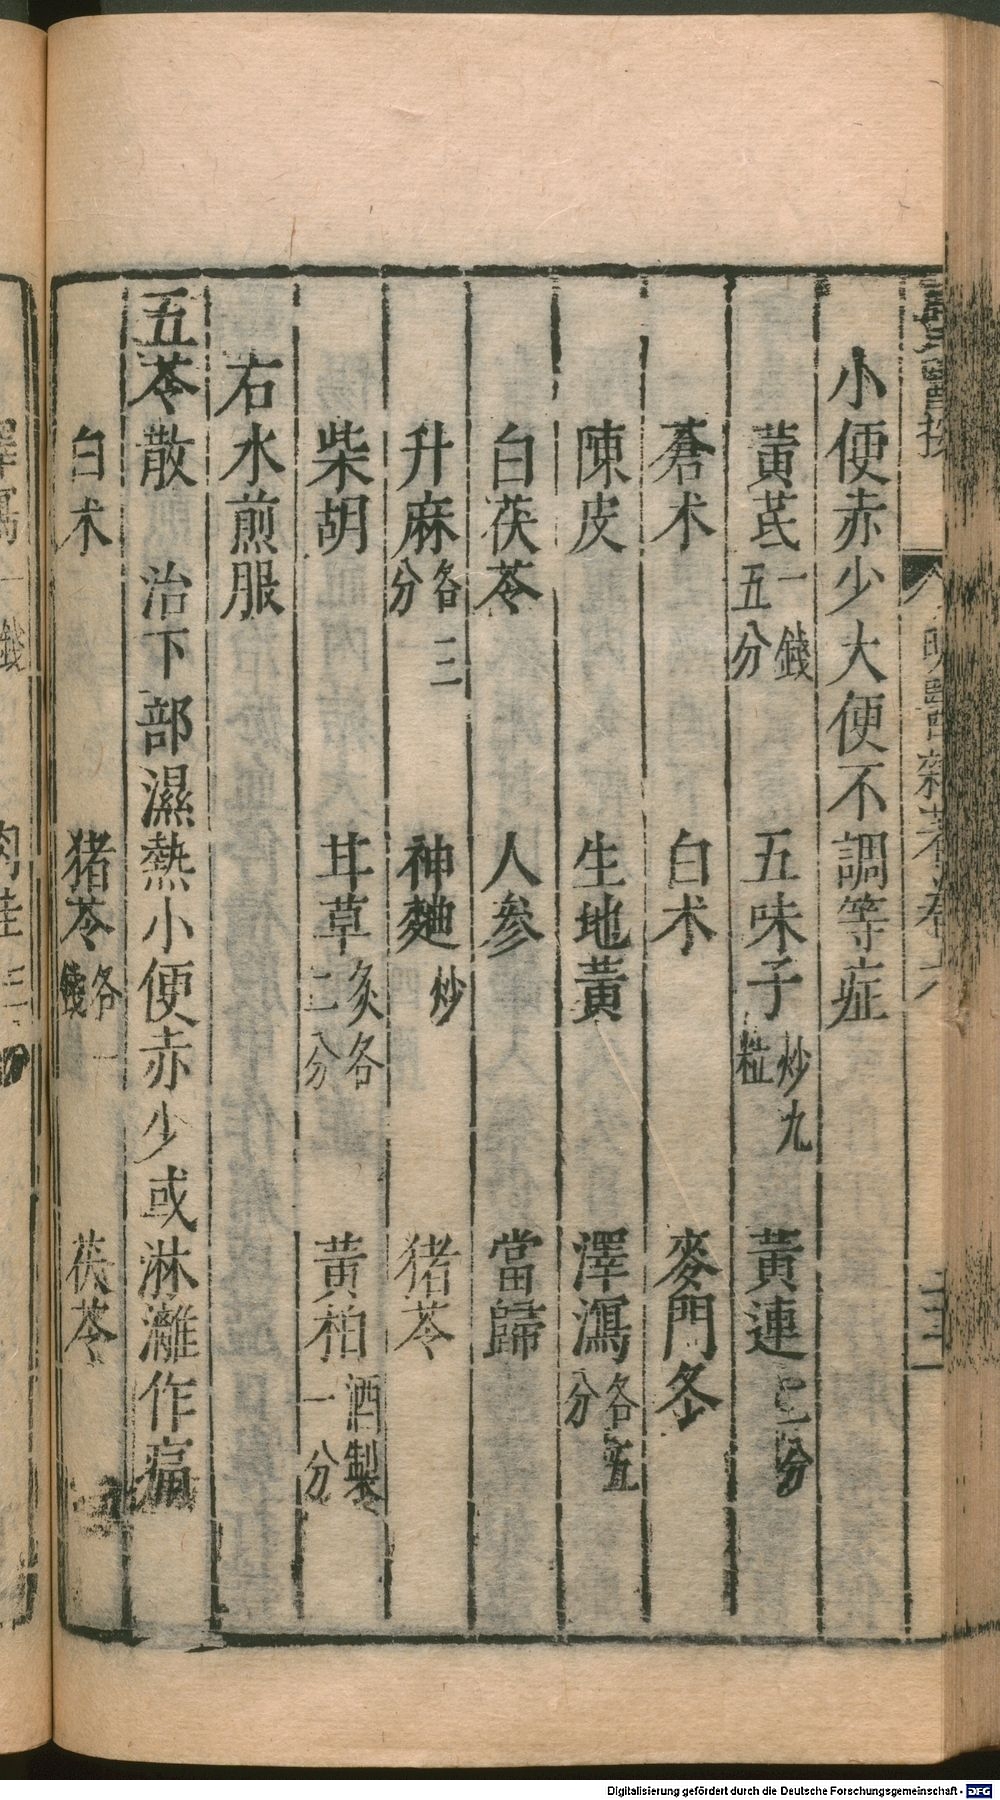 小便赤少大便不調等症
黃芪一錢五分 五味子炒九粒 黃連二分
蒼术 白术 麥門冬
陳皮 生地黃 澤瀉各五分
白茯苓 人參 當歸
升麻各三分 神麯炒 猪苓
柴胡 甘草炙各二分 黃柏酒製一分
右水煎服
五苓散 治下部濕熱小便赤少或淋瀝作痛
白术 猪苓各一錢 茯苓
Digitalisierung gefördert durch die Deutsche Forschungsgemeinschaft - DFG